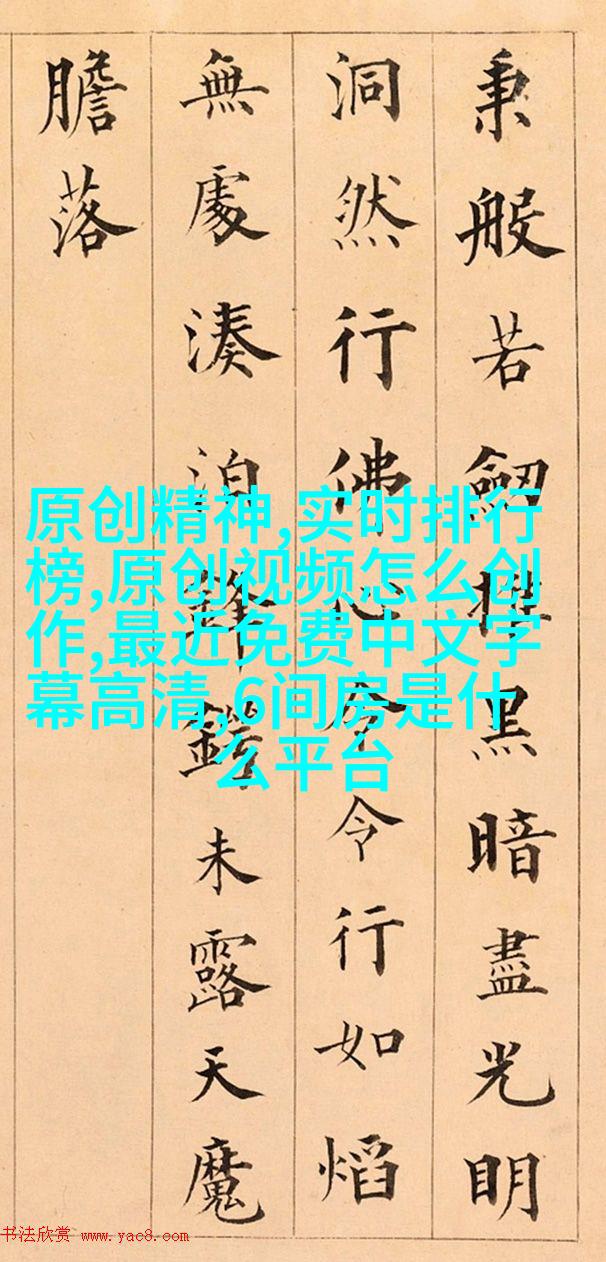 秉般若劒黑暗盡光明
洞然行佛心令令行如熖
無處湊泊鋒鍔未露天魔
膽落
原创精神,实时排行
榜,原创视频怎么创
作,最近免费中文字
幕高清,6间房是什
么平台
书法欣赏 www.yac8.com